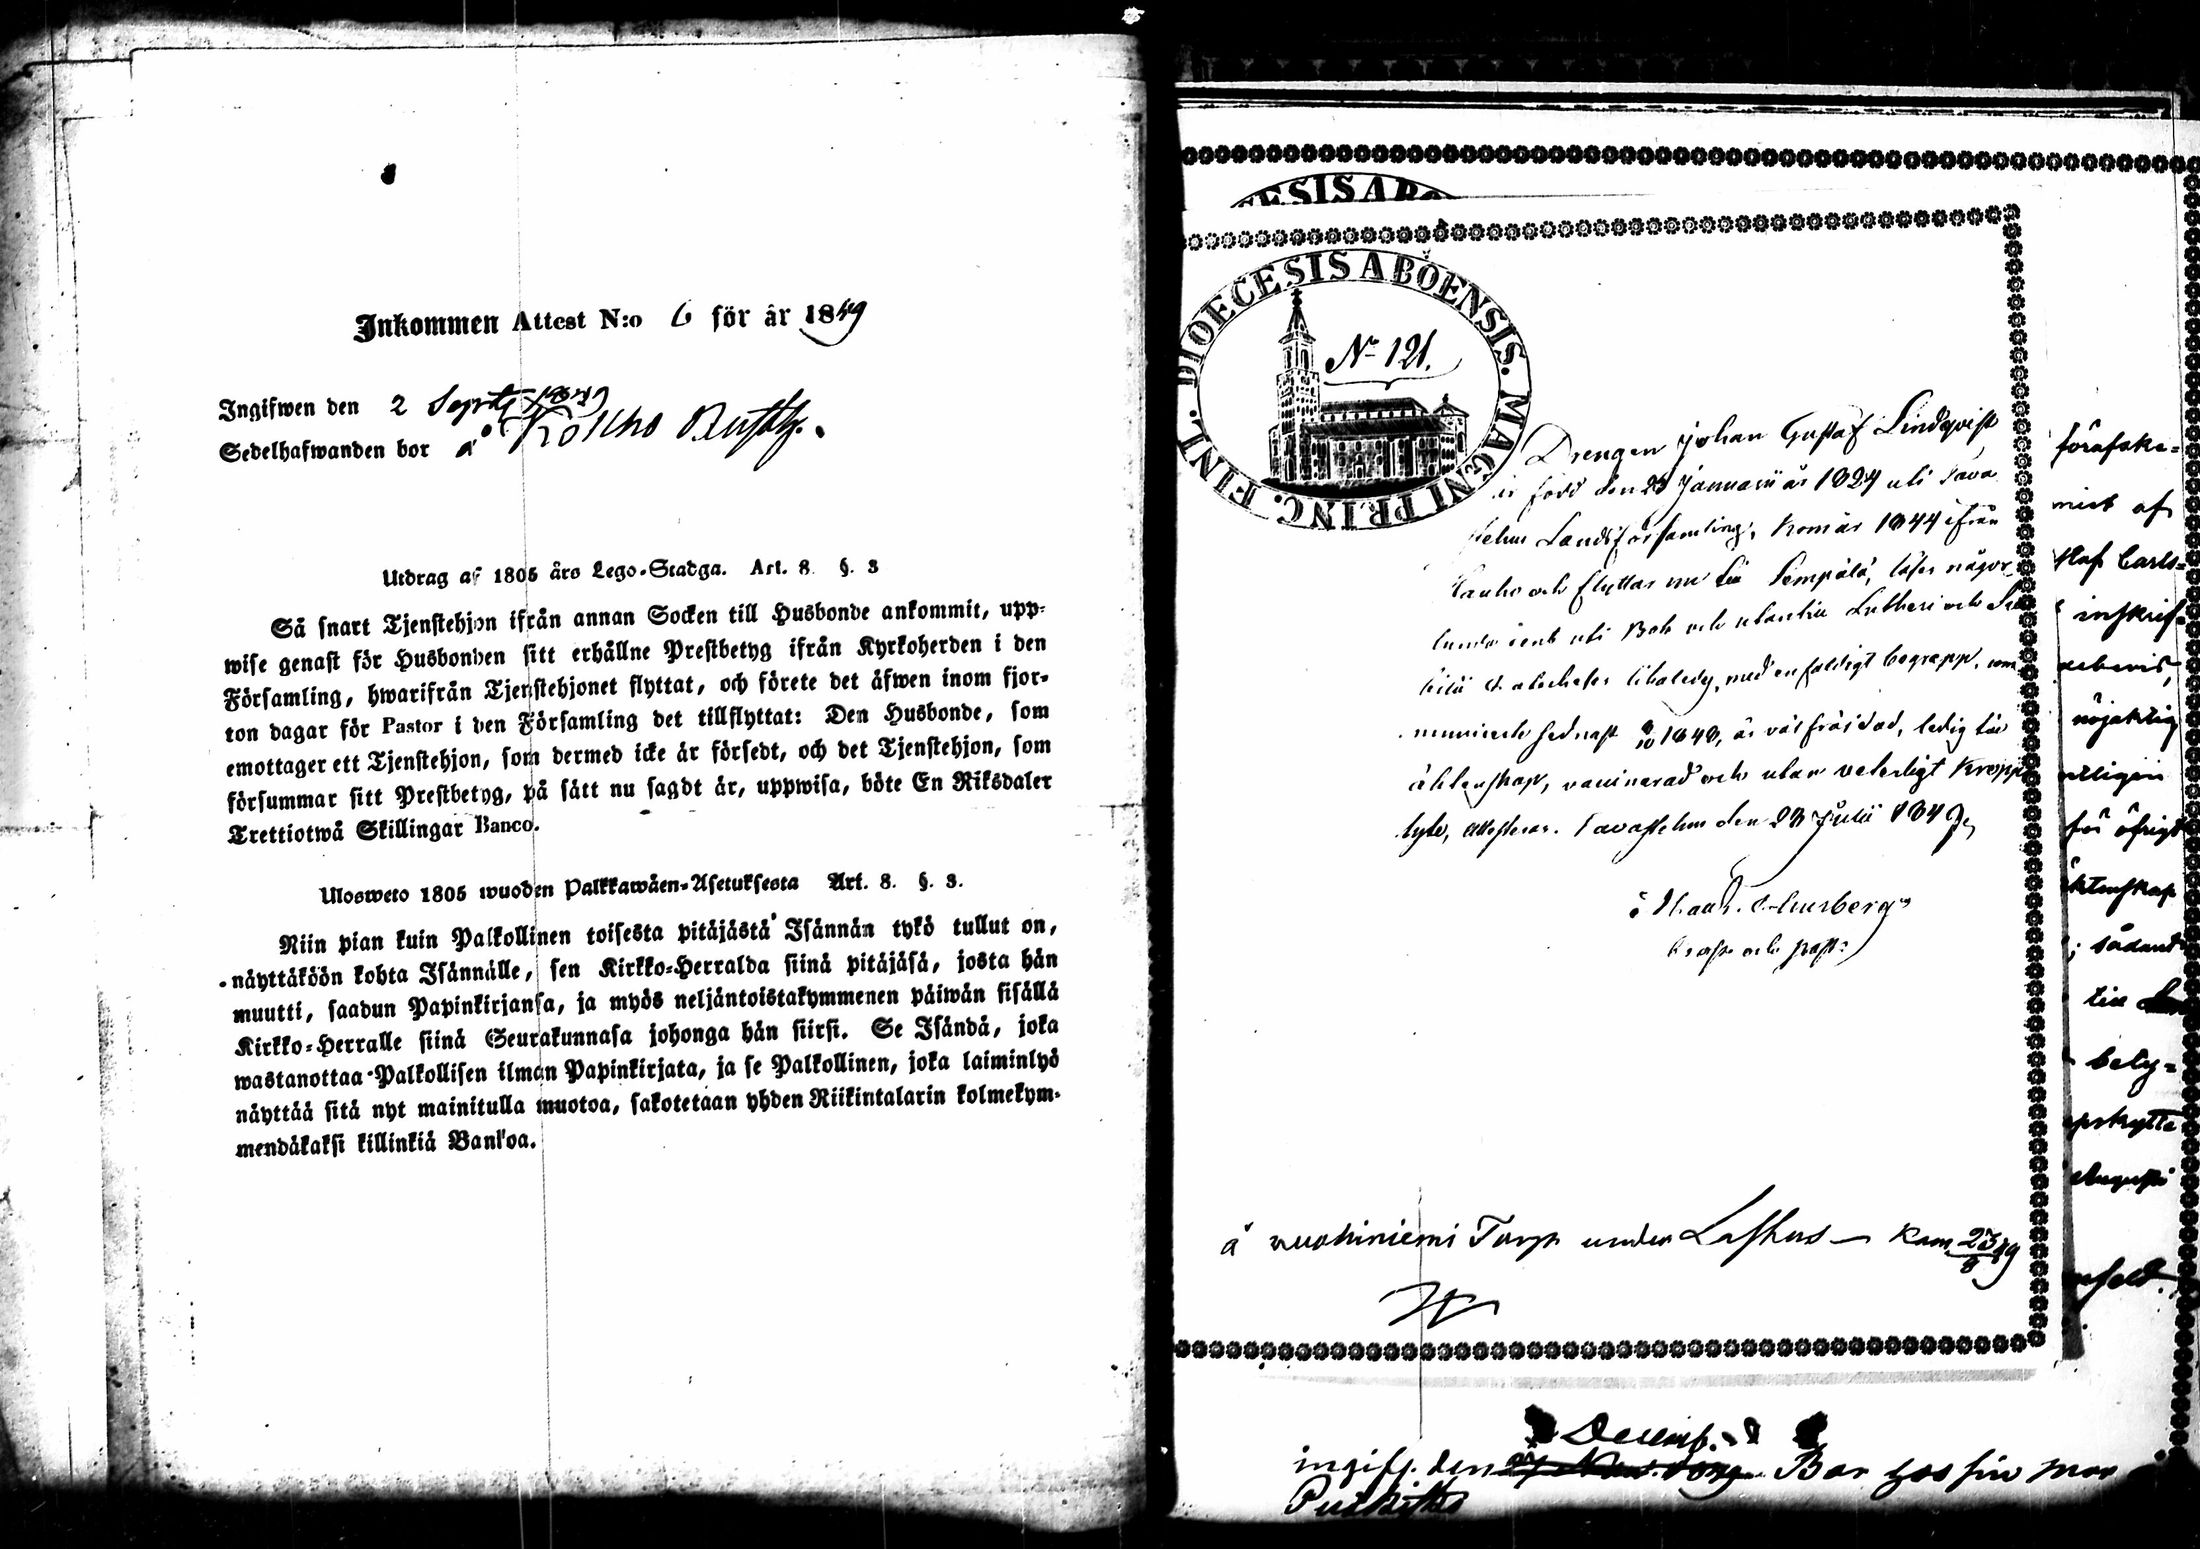 Inkommen Attest N:o 6 för år 1849
Ingifwen den 2 Septb 1849
Sedelhafwanden bor å Koskho
Utdrag af 1805 års Lego-Stadga. Art. 8 §. 3
Så snart Tjenstehjon ifrån annan Socken till Husbonde ankommit, upp-
wise genast för Husbonden sitt erhållne Prestbetyg ifrån Kyrkoherden i den
Församling, hwarifrån Tjenstehjonet flyttat, och förete det åfwen inom fjor-
ton dagar för Pastor i den Församling det tillflyttat: Den Husbonde, som
emottager ett Tjenstehjon, som dermed icke är försedt, och det Tjenstehjon, som
försummar sitt Prestbetyg, på sätt nu sagdt är, uppwisa, böte En Riksdaler
Trettiotwå Skillingar Banco.
Ulosweto 1805 wuoden Palkkawäen-Asetuksesta Art. 8. §. 3.
Niin pian kuin Palkollinen toisesta pitäjästä Isännän tykö tullut on,
näyttäköön kohta Isännälle, sen Kirkko-Herralda siinä pitäjäsä, josta hän
muutti, saadun Papinkirjansa, ja myös neljäntoistakymmenen päiwän sisällä
Kirkko-Herralle siinä Seurakunnasa johonga hän siirsi. Se Isändä, joka
wastanottaa Palkollisen ilman Papinkirjata, ja se Palkollinen, joka laiminlyö
näyttää sitä nyt mainitulla muotoa, sakotetaan yhden Riikintalarin kolmekym-
mendäkaksi killinkiä Bankoa.
ESIS ABO
DIOECESIS ABOENSIS. MAGNI PRINC. FINL.
No 121.
Drengen Johan Gustaf Lindqvist
är född den 23 Januarii år 1824 uti Tava
stehus Landsförsamling, kom år 1844 ifrån
Hauho och flyttar nu till Lempälä, läser någor-
lunda rent uti Bok och utantill Lutheri och
Cateches tilbaledy, med enfaldigt begrepp, com
municerade sednast 1848, är väl fräjdad, ledig till
äktenskap, vaccinerad och utan veterligt kropps
lyte, attesteras. Tavastehus den 23 Julii 1849,
Prost och Past:
å vuohiniemi Torp under Laskus — kom 23/8 49
förafske-
mist af
staf Carls-
inskrif-
nöjaktig
för öfrigt
äktenskap
; sådant
till
bety-
Augusti
Decemb.
ingift. den Bor hos sin mor